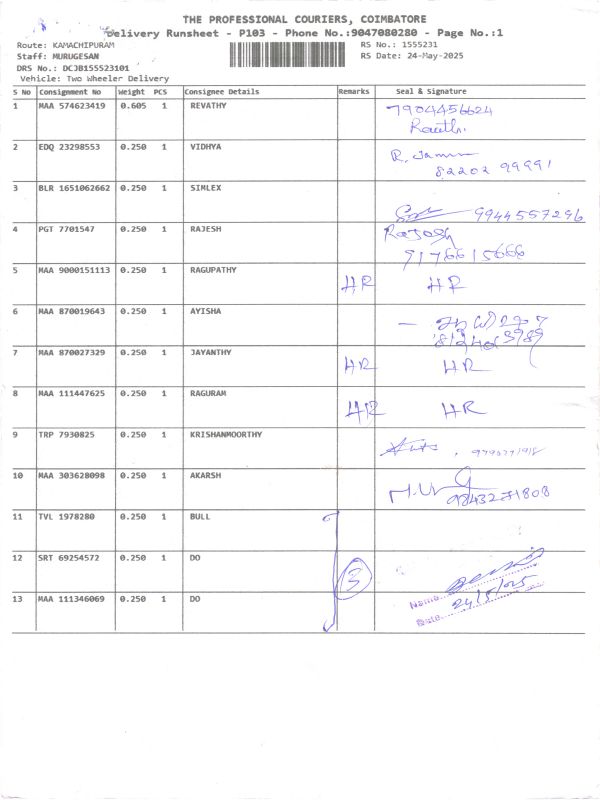 THE PROFESSIONAL COURIERS, COIMBATORE
Delivery Runsheet - P103 - Phone No.:9047080280 - Page No.:1
Route: KAMACHIPURAM
RS No.: 1555231
Staff: MURUGESAN
RS Date: 24-May-2025
DRS No.: DCJB155523101
Vehicle: Two Wheeler Delivery
S No Consignment No Weight PCS Consignee Details Remarks Seal & Signature
1 MAA 574623419 0.605 1 REVATHY 7904456624
2 EDQ 23298553 0.250 1 VIDHYA R.
82202 99991
3 BLR 1651062662 0.250 1 SIMLEX 9944557296
4 PGT 7701547 0.250 1 RAJESH Rajesh
9176615666
5 MAA 9000151113 0.250 1 RAGUPATHY HR HR
6 MAA 870019643 0.250 1 AYISHA
7 MAA 870027329 0.250 1 JAYANTHY HR HR
8 MAA 111447625 0.250 1 RAGURAM HR HR
9 TRP 7930825 0.250 1 KRISHANMOORTHY
10 MAA 303628098 0.250 1 AKARSH 9843271808
11 TVL 1978280 0.250 1 BULL
12 SRT 69254572 0.250 1 DO 3
13 MAA 111346069 0.250 1 DO Name
Date 24/5/025